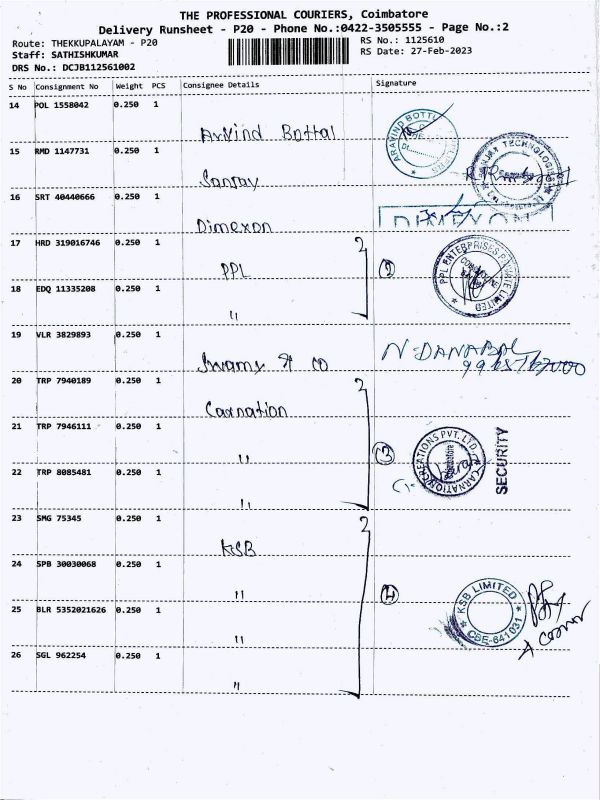 THE PROFESSIONAL COURIERS, Coimbatore
Delivery Runsheet - P20 - Phone No.:0422-3505555 - Page No.:2
Route: THEKKUPALAYAM - P20
RS No.: 1125610
Staff: SATHISHKUMAR
RS Date: 27-Feb-2023
DRS No.: DCJB112561002
S No Consignment No Weight PCS Consignee Details Signature
14 POL 1558042 0.250 1
Arvind Bottal
15 RMD 1147731 0.250 1
Sanjay
16 SRT 40440666 0.250 1
Dimexon
DIMEXON
17 HRD 319016746 0.250 1
PPL
2
PPL ENTERPRISES PRIVATE LIMITED
18 EDQ 11335208 0.250 1
"
19 VLR 3829893 0.250 1
Swamy & Co
N. DANABAL
20 TRP 7940189 0.250 1
Carnation
21 TRP 7946111 0.250 1
"
3
CARNATION CREATIONS PVT. LTD.
SECURITY
22 TRP 8085481 0.250 1
"
23 SMG 75345 0.250 1
KSB
24 SPB 30030068 0.250 1
"
4
KSB LIMITED
CBE-641 031
25 BLR 5352021626 0.250 1
"
26 SGL 962254 0.250 1
"